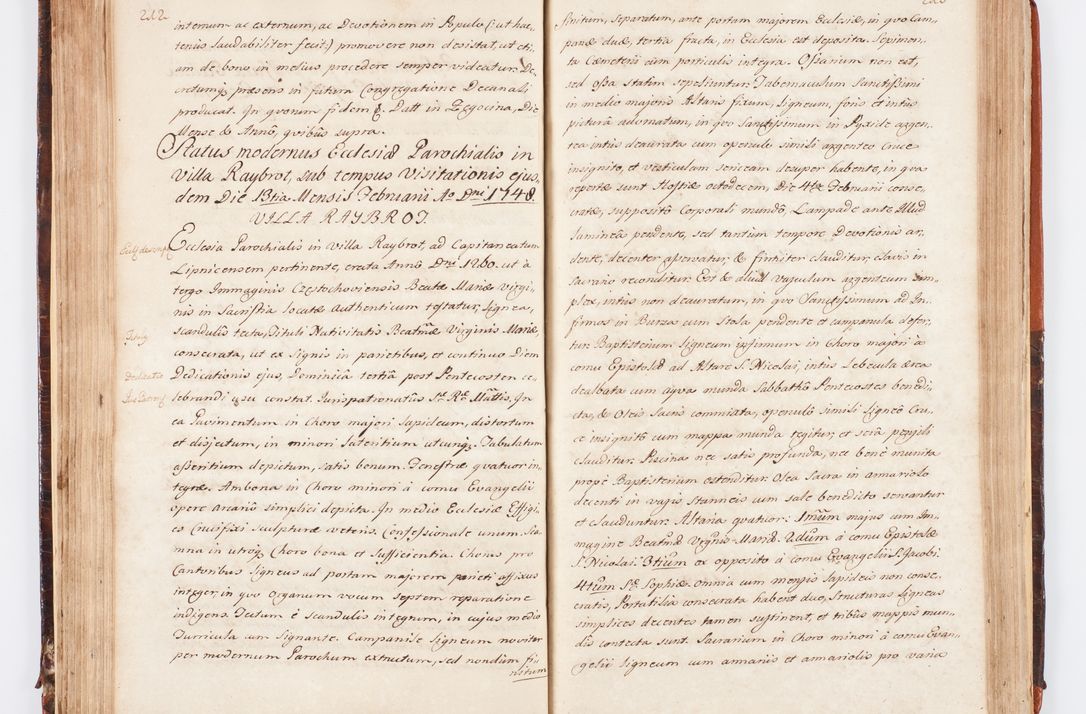 212.
internum ac externum, ac Devotionem in Populo (: ut hac„
tenus laudabiliter fecit :) promovere non desistat, ut eti„
am de bono in melius procedere semper videatur. De„
cretumq; præsens in futura Congregatione Decanali
producat. In quorum fidem &. Datt in Rzegocina, Die
Mense & Anno, quibus supra.
Status modernus Ecclesiæ Parochialis in
villa Raybrot, sub tempus Visitationis ejus„
dem Die 13tia Mensis Februarii Ao Dni 1748.
VILLA RAYBROT.
Ecclesia Parochialis in villa Raybrot, ad Capitaneatum
Lipnicensem pertinente, erecta Anno Dni 1260. ut à
tergo Immaginis Częstochoviensis Beatæ Mariæ Virgi„
nis in Sacristia locatæ Authenticum testatur, lignea,
scandulis tecta, Tituli Nativitatis Beatmæ Virginis Mariæ,
consecrata, ut ex signis in parietibus, et continuo Diem
Dedicationis
Dedicationis ejus, Dominica tertia post Pentecosten ce„
lebrandi usu constat. Jurispatronatus Sæ Ræ Mattis. In
ea Pavimentum in Choro majori lapideum, distortum
et disjectum, in minori lateritium utcunq; Tabulatum
asseritium depictum, satis bonum. Fenestræ quatuor in„
tegræ. Ambona in Choro minori à cornu Evangelii
opere arcario simplici depicta. In medio Ecclesiæ Effigi„
es Crucifixi sculpturæ veteris. Confessionale unum. Sca„
mna in utroq; Choro bona et sufficientia. Chorus pro
Cantoribus ligneus ad portam majorem parieti affixus
integer, in quo Organum vocum septem reparatione
indigens. Tectum è scandulis integrum, in cujus medio
Turricula cum signante. Campanile ligneum noviter
per modernum Parochum extructum, sed nondum fi„
nitum
finitum, separatum, ante portam majorem Ecclesiæ, in quo Cam„
panæ duæ, tertia fracta, in Ecclesia est deposita. Sepimen„
ta Cæmeterii cum porticulis integra. Ossarium non est,
sed ossa statim sepeliuntur. Tabernaculum Sanctissimi
in medio majoris Altaris fixum, ligneum, foris et intus
pictura adornatum, in quo Sanctissimum in Pyxide argen„
tea intus deaurata cum operculo simili argenteo Cruce
insignito, et vesticulam sericeam desuper habente, in qua
repertæ sunt Hostiæ octodecem, Die 4tæ Februarii conse„
cratæ, supposito Corporali mundo, Lampade ante illud
luminea pendente, sed tantum tempore Devotionis ar„
dente, decenter asservatur, & firmiter clauditur, clavis in
Sacrario reconditur. Est & aliud vasculum argenteum sim„
plex, intus non deauratum, in quo Sanctissimum ad In„
firmos in Bursa cum Stola pendente et campanula defer„
tur. Baptisterium ligneum infimum in Choro majori à
cornu Epistolæ ad Altare S. Nicolai, intus lebecula ærea
dealbata cum aqua munda Sabbatho Pentecostes benedi„
cta, & Oleis Sacris commixta, operculo simili ligneo Cru„
ce insignito cum mappa munda tegitur, et sera pensili
clauditur. Piscina nec satis profunda, nec bene munita
prope Baptisterium ostenditur. Olea Sacra in armariolo
decenti in vasis stanneis cum sale benedicto servantur
et clauduntur. Altaria quatuor: 1mum majus cum Im„
magine Beatmæ Virginis Mariæ. 2dum à cornu Epistolæ
S. Nicolai. 3tium ex opposito à cornu Evangelii S. Jacobi.
4tum Sæ Sophiæ. Omnia cum mensis lapideis non conse„
cratis, Portatilia consecrata habent duo, Structuras ligneas
simplices decentes tamen sustinent, et tribus mappis mun„
dis contecta sunt. Sacrarium in Choro minori à cornu Evan„
gelii ligneum cum armariis et armariolis pro varia